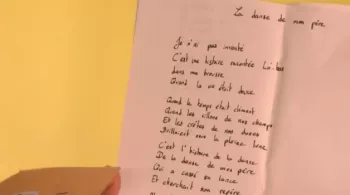 La danse de mon père
Je n'ai pas inventé
C'est une histoire racontée Là-bas
dans ma brousse
Quand la vie était douce
Quand le temps était clément
Quand les sillons de nos champs
Et les crêtes de nos dunes
Brillaient sous la pleine lune
C'est l'histoire de la danse
De la danse de mon père
Qui a cassé sa lance
Et cherchait son repère